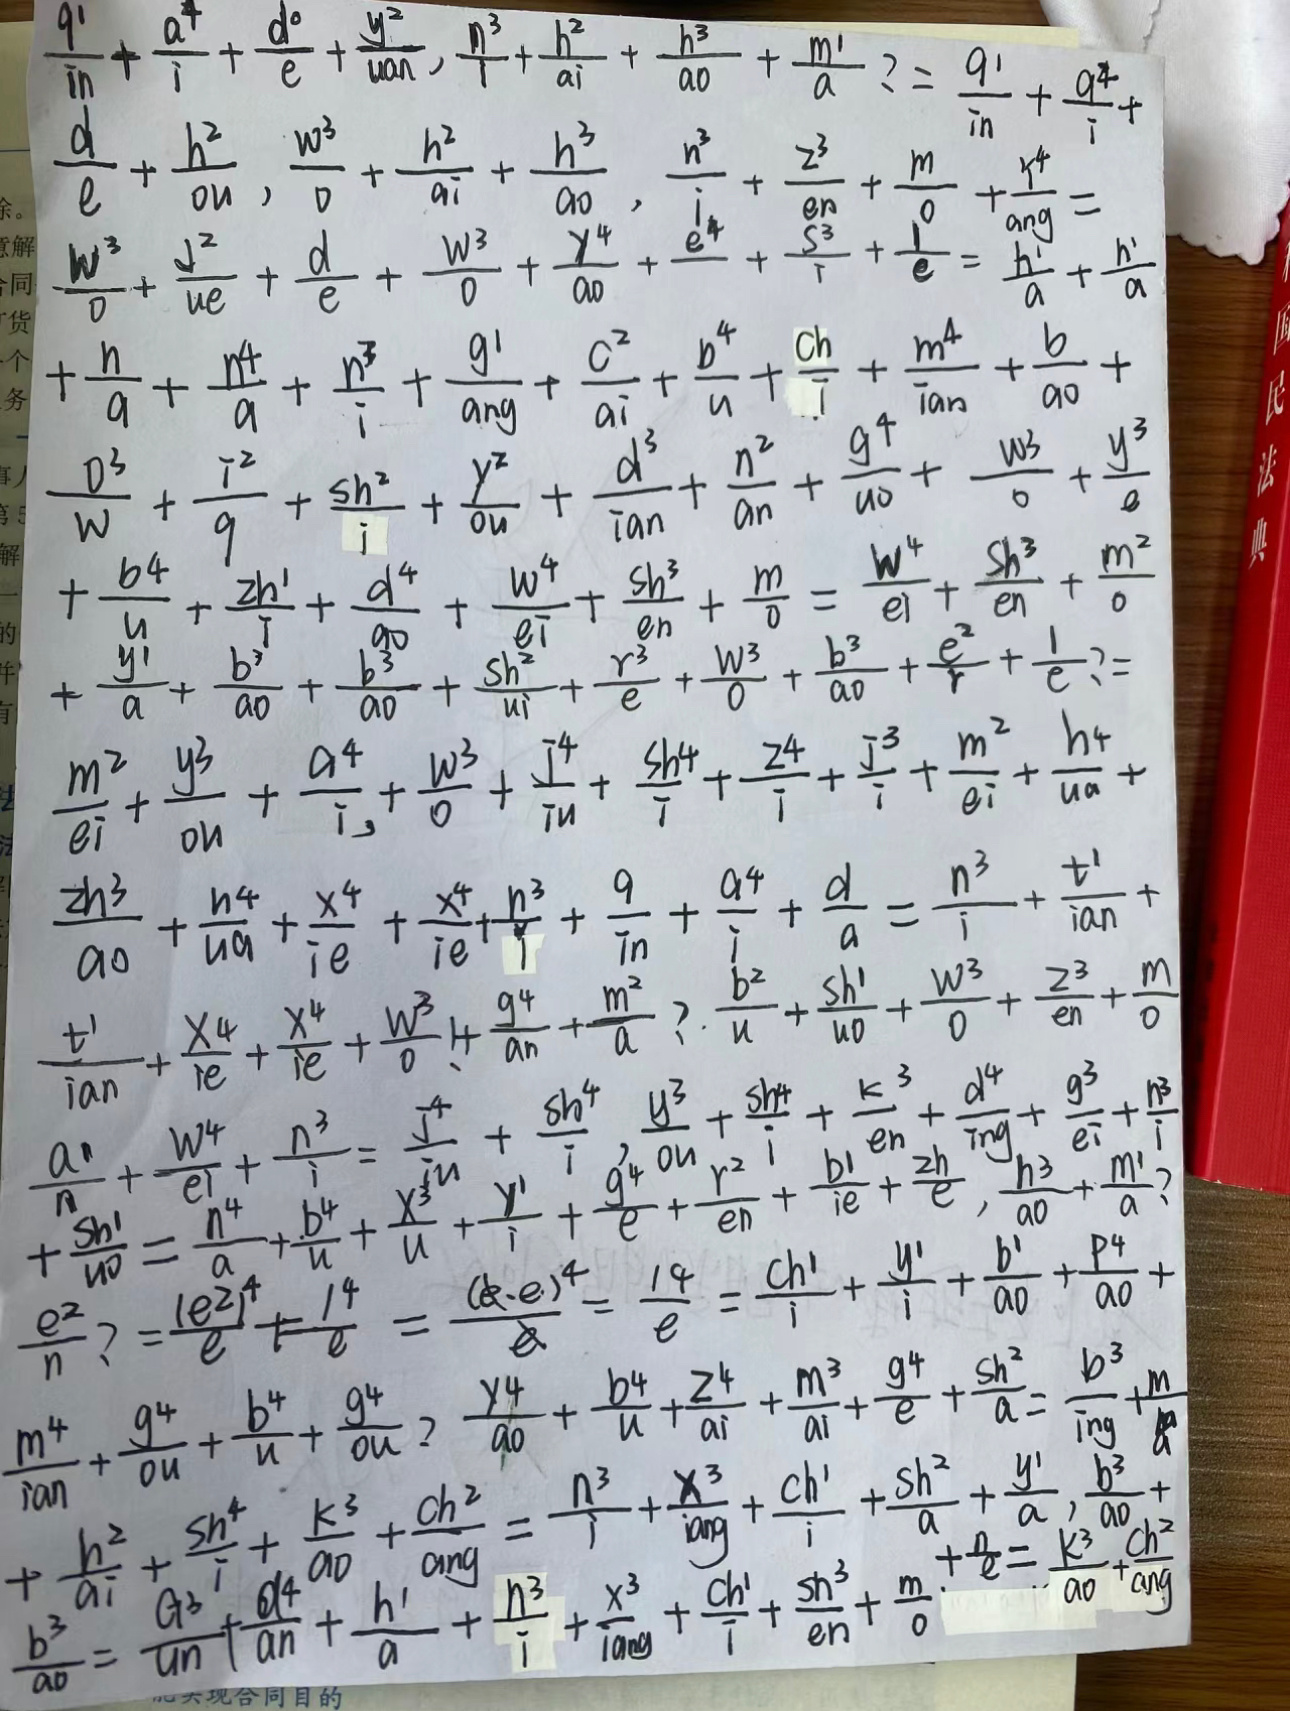 q¹/in + a⁴/i + d⁰/e + y²/uan, n³/i + h²/ai + h³/ao + m¹/a ? = q¹/in + a⁴/i +
d/e + h²/ou, w³/o + h²/ai + h³/ao, n³/i + z³/en + m/o + y⁴/ang =
w³/o + J²/ue + d/e + w³/o + y⁴/ao + e⁴/ + s³/i + l/e = h¹/a + h¹/a
+ h/a + n⁴/a + n³/i + g¹/ang + c²/ai + b⁴/u + ch/i + m⁴/ian + b/ao +
o³/w + i²/q + sh²/i + y²/ou + d³/ian + n²/an + g⁴/uo + w³/o + y³/e
+ b⁴/u + zh¹/i + d⁴/ao + w⁴/ei + sh³/en + m/o = w⁴/ei + sh³/en + m²/o
+ y¹/a + b³/ao + b³/ao + sh²/ui + r³/e + w³/o + b³/ao + e²/r + l/e ? =
m²/ei + y³/ou + a⁴/i, + w³/o + J⁴/iu + sh⁴/i + z⁴/i + J³/i + m²/ei + h⁴/ua +
zh³/ao + h⁴/ua + x⁴/ie + x⁴/ie + n³/i + q/in + a⁴/i + d/a = n³/i + t¹/ian +
t¹/ian + x⁴/ie + x⁴/ie + w³/o ! + g⁴/an + m²/a ? . b²/u + sh¹/uo + w³/o + z³/en + m/o
an/n + w⁴/ei + n³/i = J⁴/iu + sh⁴/i, y³/ou + sh⁴/i + k³/en + d⁴/ing + g³/ei + n³/i
+ sh¹/uo = n⁴/a + b⁴/u + x³/u + y¹/i + g⁴/e + r²/en + b¹/ie + zh/e, h³/ao + m¹/a ?
e²/n ? = (e²)⁴/e + l⁴/e = (e·e)⁴/e = l⁴/e = ch¹/i + y¹/i + b¹/ao + p⁴/ao +
m⁴/ian + g⁴/ou + b⁴/u + g⁴/ou ? y⁴/ao + b⁴/u + z⁴/ai + m³/ai + g⁴/e + sh²/a = b³/ing + m/a
+ h²/ai + sh⁴/i + k³/ao + ch²/ang = n³/i + x³/iang + ch¹/i + sh²/a + y¹/a, b³/ao +
b³/ao = G³/un + d⁴/an + h¹/a + n³/i + x³/iang + ch¹/i + sh³/en + m/o . + n/e = k³/ao + ch²/ang
实现合同目的
国民法典